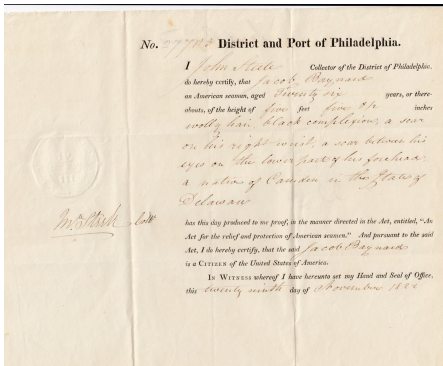 No. District and Port of Philadelphia.
I John Steele Collector of the District of Philadelphia,
do hereby certify, that Jacob Baynard
an American seaman, aged Twenty six years, or there-
abouts, of the height of five feet five inches
woolly hair, black complexion, a scar
on his right wrist, a scar between his
eyes on the lower part of his forehead
a native of Camden in the State of
Delaware
has this day produced to me proof, in the manner directed in the Act, entitled, "An
Act for the relief and protection of American seamen." And pursuant to the said
Act, I do hereby certify, that the said Jacob Baynard
is a CITIZEN of the United States of America.
IN WITNESS whereof I have hereunto set my Hand and Seal of Office,
this twenty ninth day of November